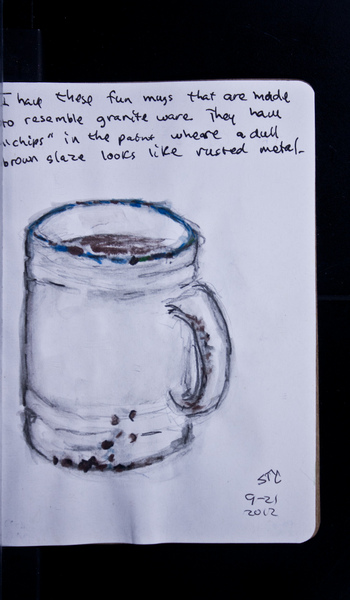 I have these fun mugs that are made
to resemble granite ware. They have
"chips" in the paint wheare a dull
brown glaze looks like rusted metal-
STC
9-21
2012